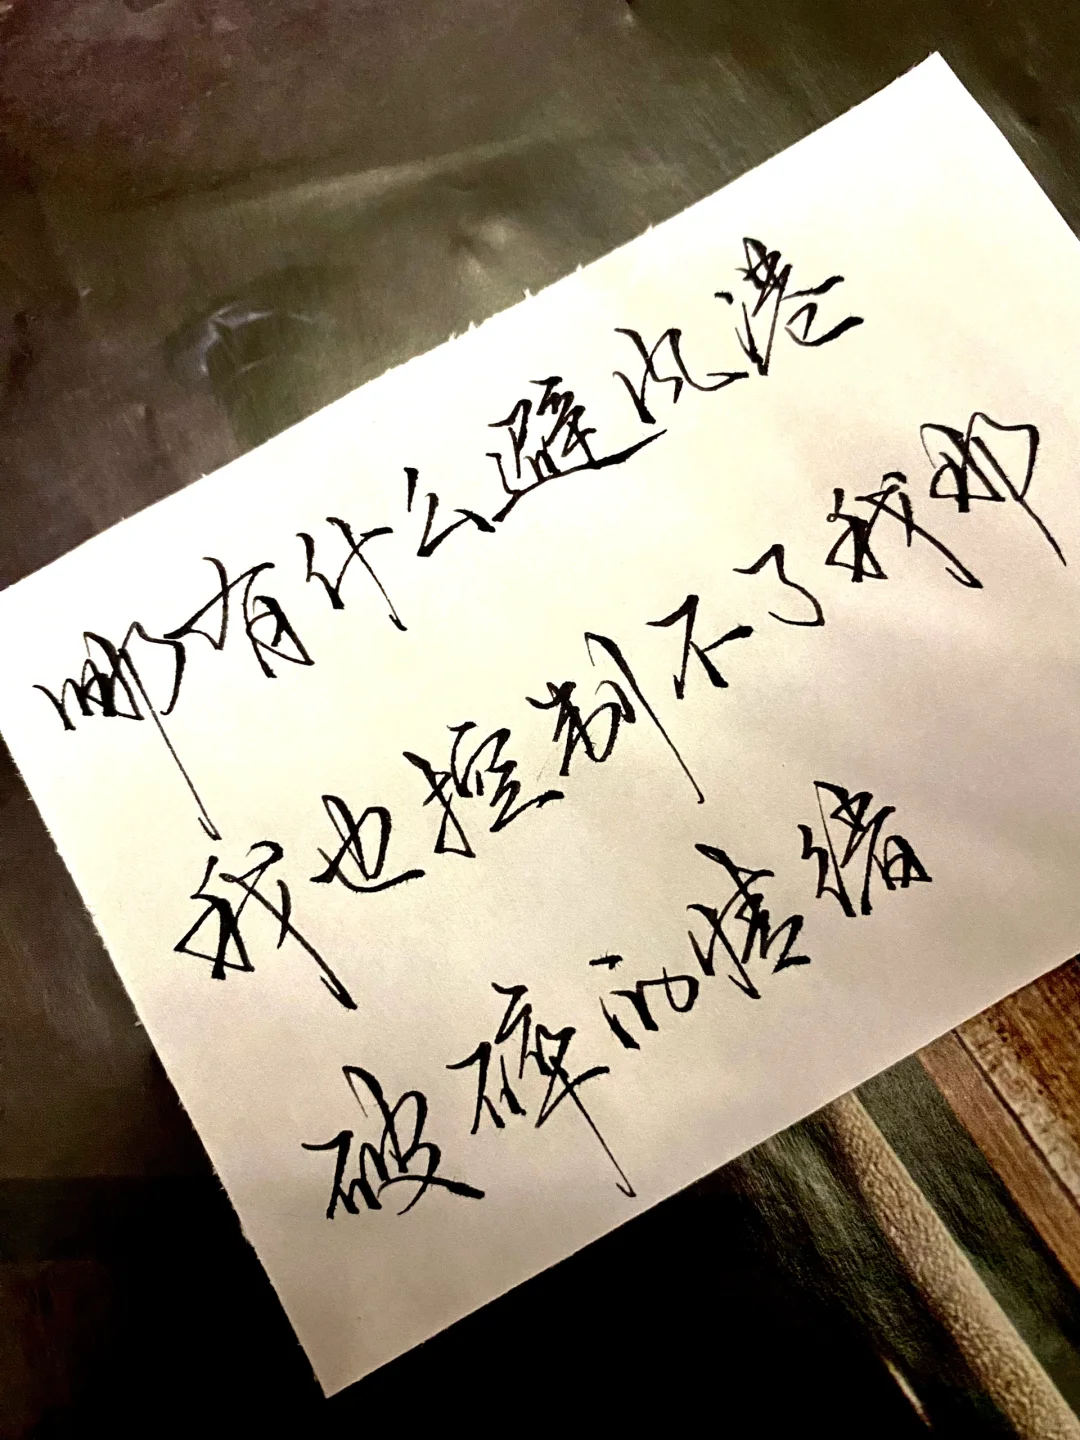 哪有什么避风港
我也控制不了我那
破碎的情绪